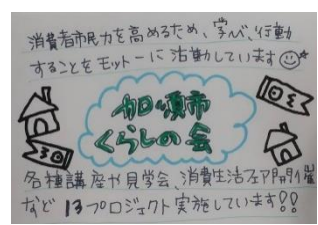 消費者市民力を高めるため、学び、行動
することをモットーに活動しています
加須市
くらしの会
各種講座や見学会、消費生活フェア開催
など 13プロジェクト実施しています!!